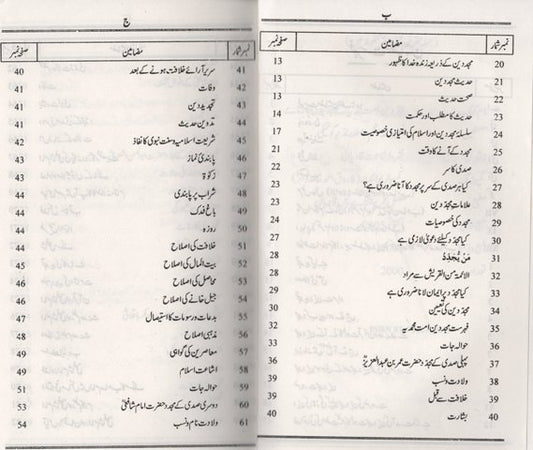 ب
نمبر شمار مضامین صفحہ نمبر
20 مجددین کے ذریعہ زندہ خدا کا ظہور 13
21 حدیث مجددین 13
22 صحت حدیث
23 حدیث کا مطلب اور حکمت
24 سلسلہ مجددین اور اسلام کی امتیازی خصوصیت 17
25 مجدد کے آنے کا وقت
26 صدی کا سر
27 کیا ہر صدی کے سر پر مجدد کا آنا ضروری ہے؟
28 علامات مجددین
29 مجدد کی خصوصیات
30 کیا مجدد کیلئے دعویٰ لازمی ہے
31 مَنْ یُّجَدِّدُ
32 الائمۃ من القریش سے مراد
33 کیا مجدد پر ایمان لانا ضروری ہے
34 مجددین کی تعیین
35 فہرست مجددین امت محمدیہ
36 حوالہ جات
37 پہلی صدی کے مجدد حضرت عمر بن عبدالعزیزؒ 38
38 ولادت و نسب
39 خلافت سے قبل
40 بشارت 40
ج
نمبر شمار مضامین صفحہ نمبر
41 سریر آرائے خلافت ہونے کے بعد 40
42 وفات 41
43 تجدید دین 41
44 تدوین حدیث 41
45 شریعت اسلامیہ و سنت نبوی کا نفاذ 42
46 پابندی نماز 43
47 زکوٰۃ 43
48 شراب پر پابندی 43
49 باغ فدک 44
50 روزہ 44
51 خلافت کی اصلاح 44
52 بیت المال کی اصلاح 44
53 محاصل کی اصلاح 46
54 جیل خانے کی اصلاح 46
55 بدعات و رسومات کا استیصال 47
56 مذہبی اصلاح 48
57 معاصرین کی گواہی 49
58 اشاعت اسلام 49
59 حوالہ جات 51
60 دوسری صدی کے مجدد حضرت امام شافعیؒ 53
61 ولادت نام و نسب 54